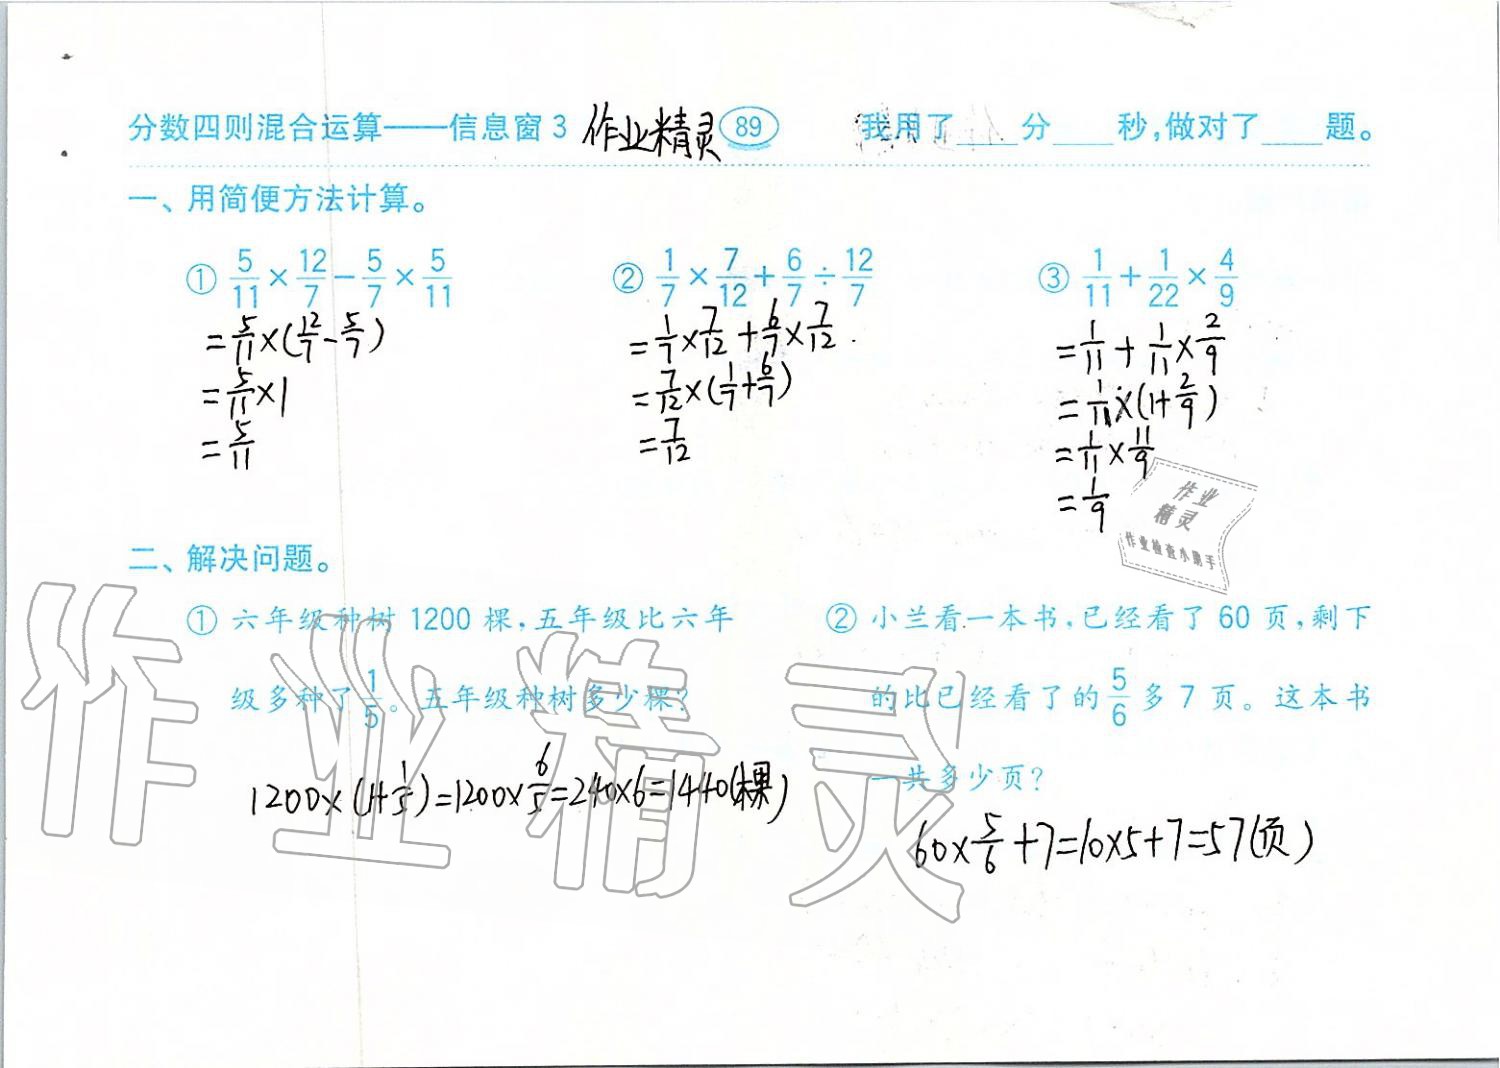 分数四则混合运算——信息窗3 作业精灵 89 我用了____分____秒,做对了____题。
一、用简便方法计算。
① 5/11×12/7−5/7×5/11 ② 1/7×7/12+6/7÷12/7 ③ 1/11+1/22×4/9
=5/11×(12/7−5/7) =1/7×7/12+6/7×7/12 =1/11+1/11×2/9
=5/11×1 =7/12×(1/7+6/7) =1/11×(1+2/9)
=5/11 =7/12 =1/11×11/9
=1/9
作业
精灵
作业检查小助手
二、解决问题。
① 六年级种树1200棵,五年级比六年
级多种了1/5。五年级种树多少棵?
1200×(1+1/5)=1200×6/5=240×6=1440(棵)
② 小兰看一本书,已经看了60页,剩下
的比已经看了的5/6多7页。这本书
一共多少页?
60×5/6+7=10×5+7=57(页)
作业精灵